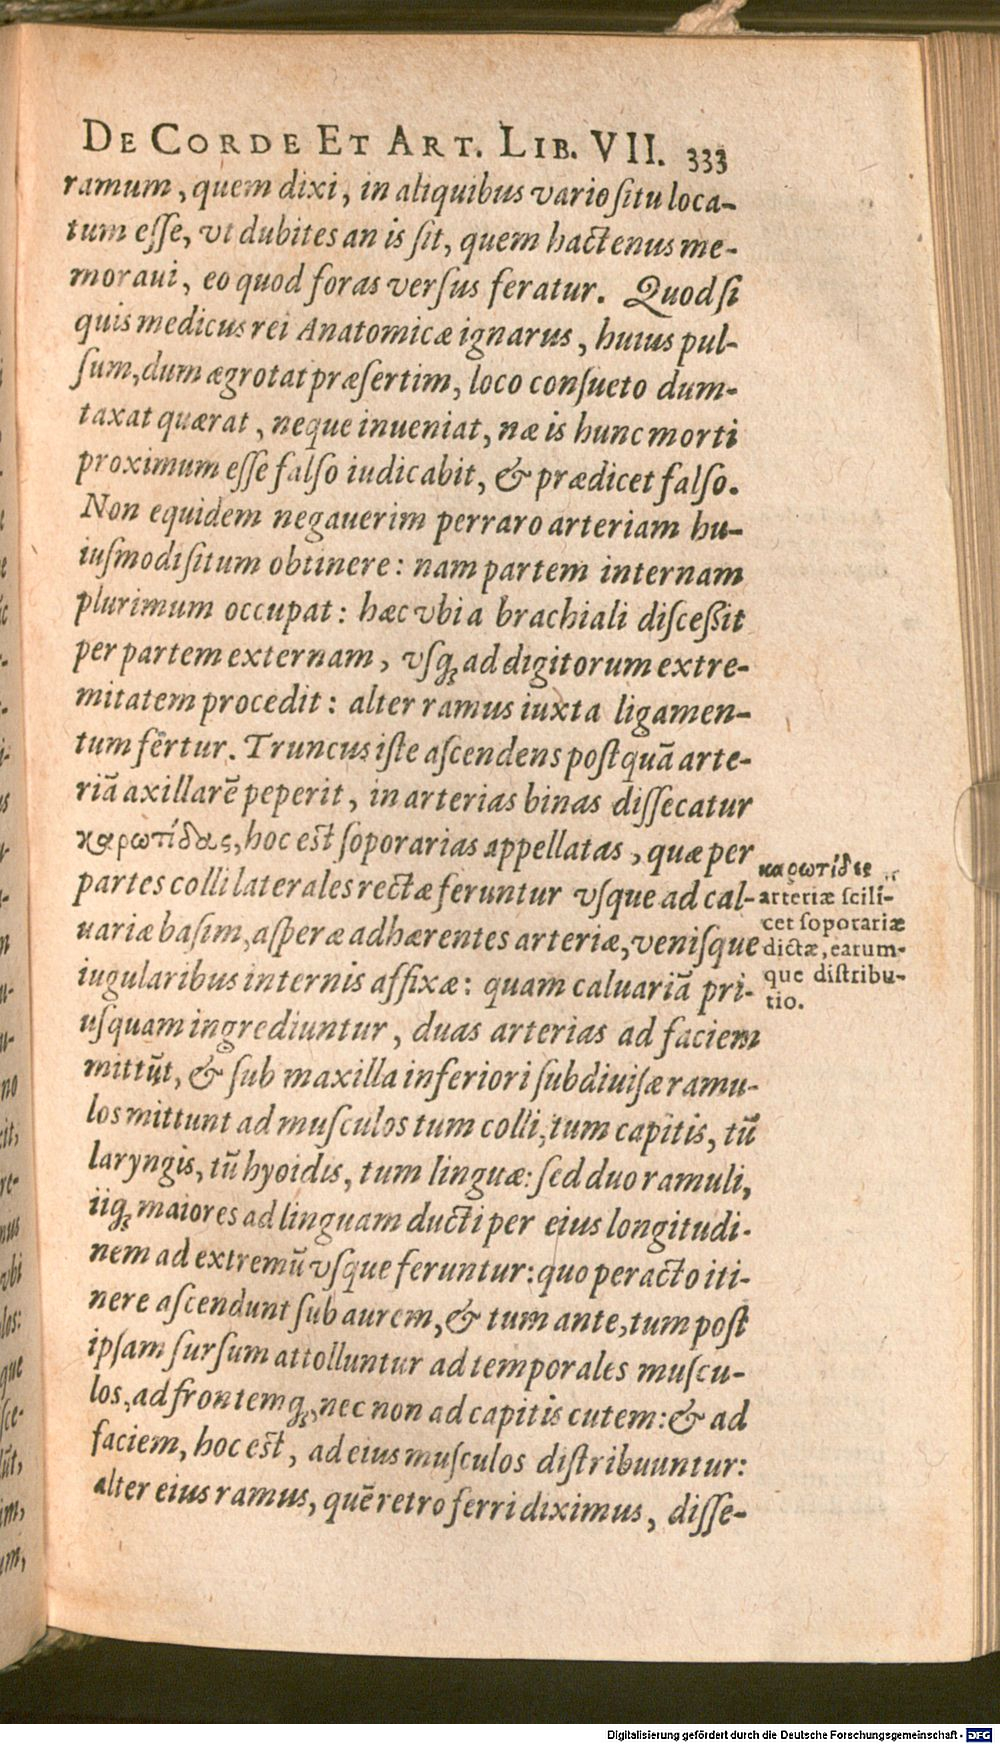 DE CORDE ET ART. LIB. VII. 333
ramum, quem dixi, in aliquibus vario ſitu loca-
tum eſſe, vt dubites an is ſit, quem hactenus me-
moraui, eo quod foras verſus feratur. Quod ſi
quis medicus rei Anatomicæ ignarus, huius pul-
ſum, dum ægrotat præſertim, loco conſueto dum-
taxat quærat, neque inueniat, næ is hunc morti
proximum eſſe falſo iudicabit, & prædicet falſo.
Non equidem negauerim perraro arteriam hu-
iuſmodi ſitum obtinere: nam partem internam
plurimum occupat: hæc vbi a brachiali diſceßit
per partem externam, vſq; ad digitorum extre-
mitatem procedit: alter ramus iuxta ligamen-
tum fertur. Truncus iſte aſcendens poſtquã arte-
riã axillarẽ peperit, in arterias binas diſſecatur
καρωτίδας, hoc eſt ſoporarias appellatas, quæ per
partes colli laterales rectæ feruntur vſque ad cal-
uariæ baſim, aſperæ adhærentes arteriæ, veniſque
iugularibus internis affixæ: quam caluariã pri-
uſquam ingrediuntur, duas arterias ad faciem
mittũt, & ſub maxilla inferiori ſubdiuiſæ ramu-
los mittunt ad muſculos tum colli, tum capitis, tũ
laryngis, tũ hyoidis, tum linguæ: ſed duo ramuli,
iiq; maiores ad linguam ducti per eius longitudi-
nem ad extremũ vſque feruntur: quo peracto iti-
nere aſcendunt ſub aurem, & tum ante, tum poſt
ipſam ſurſum attolluntur ad temporales muſcu-
los, ad frontemq;, nec non ad capitis cutem: & ad
faciem, hoc eſt, ad eius muſculos diſtribuuntur:
alter eius ramus, quẽ retro ferri diximus, diſſe-
καρωτίδες
arteriæ ſcili-
cet ſoporariæ
dictæ, earum-
que diſtribu-
tio.
Digitalisierung gefördert durch die Deutsche Forschungsgemeinschaft - DFG